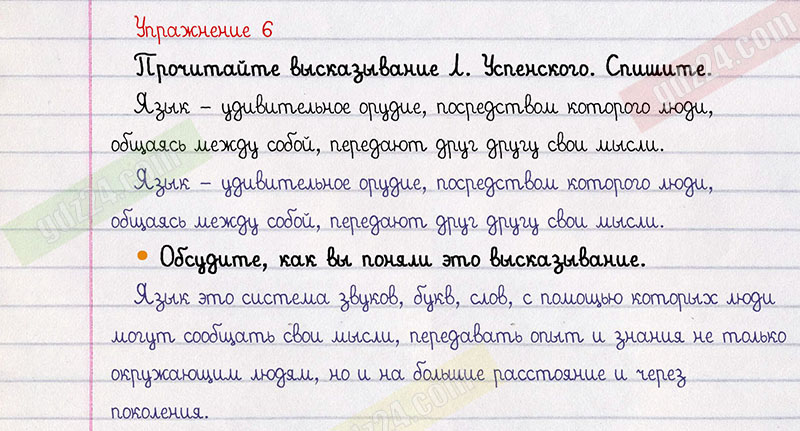 Упражнение 6
Прочитайте высказывание Л. Успенского. Спишите.
Язык – удивительное орудие, посредством которого люди,
общаясь между собой, передают друг другу свои мысли.
Язык – удивительное орудие, посредством которого люди,
общаясь между собой, передают друг другу свои мысли.
• Обсудите, как вы поняли это высказывание.
Язык это система звуков, букв, слов, с помощью которых люди
могут сообщать свои мысли, передавать опыт и знания не только
окружающим людям, но и на большие расстояние и через
поколения.
gdz24.com
gdz24.com
gdz24.com